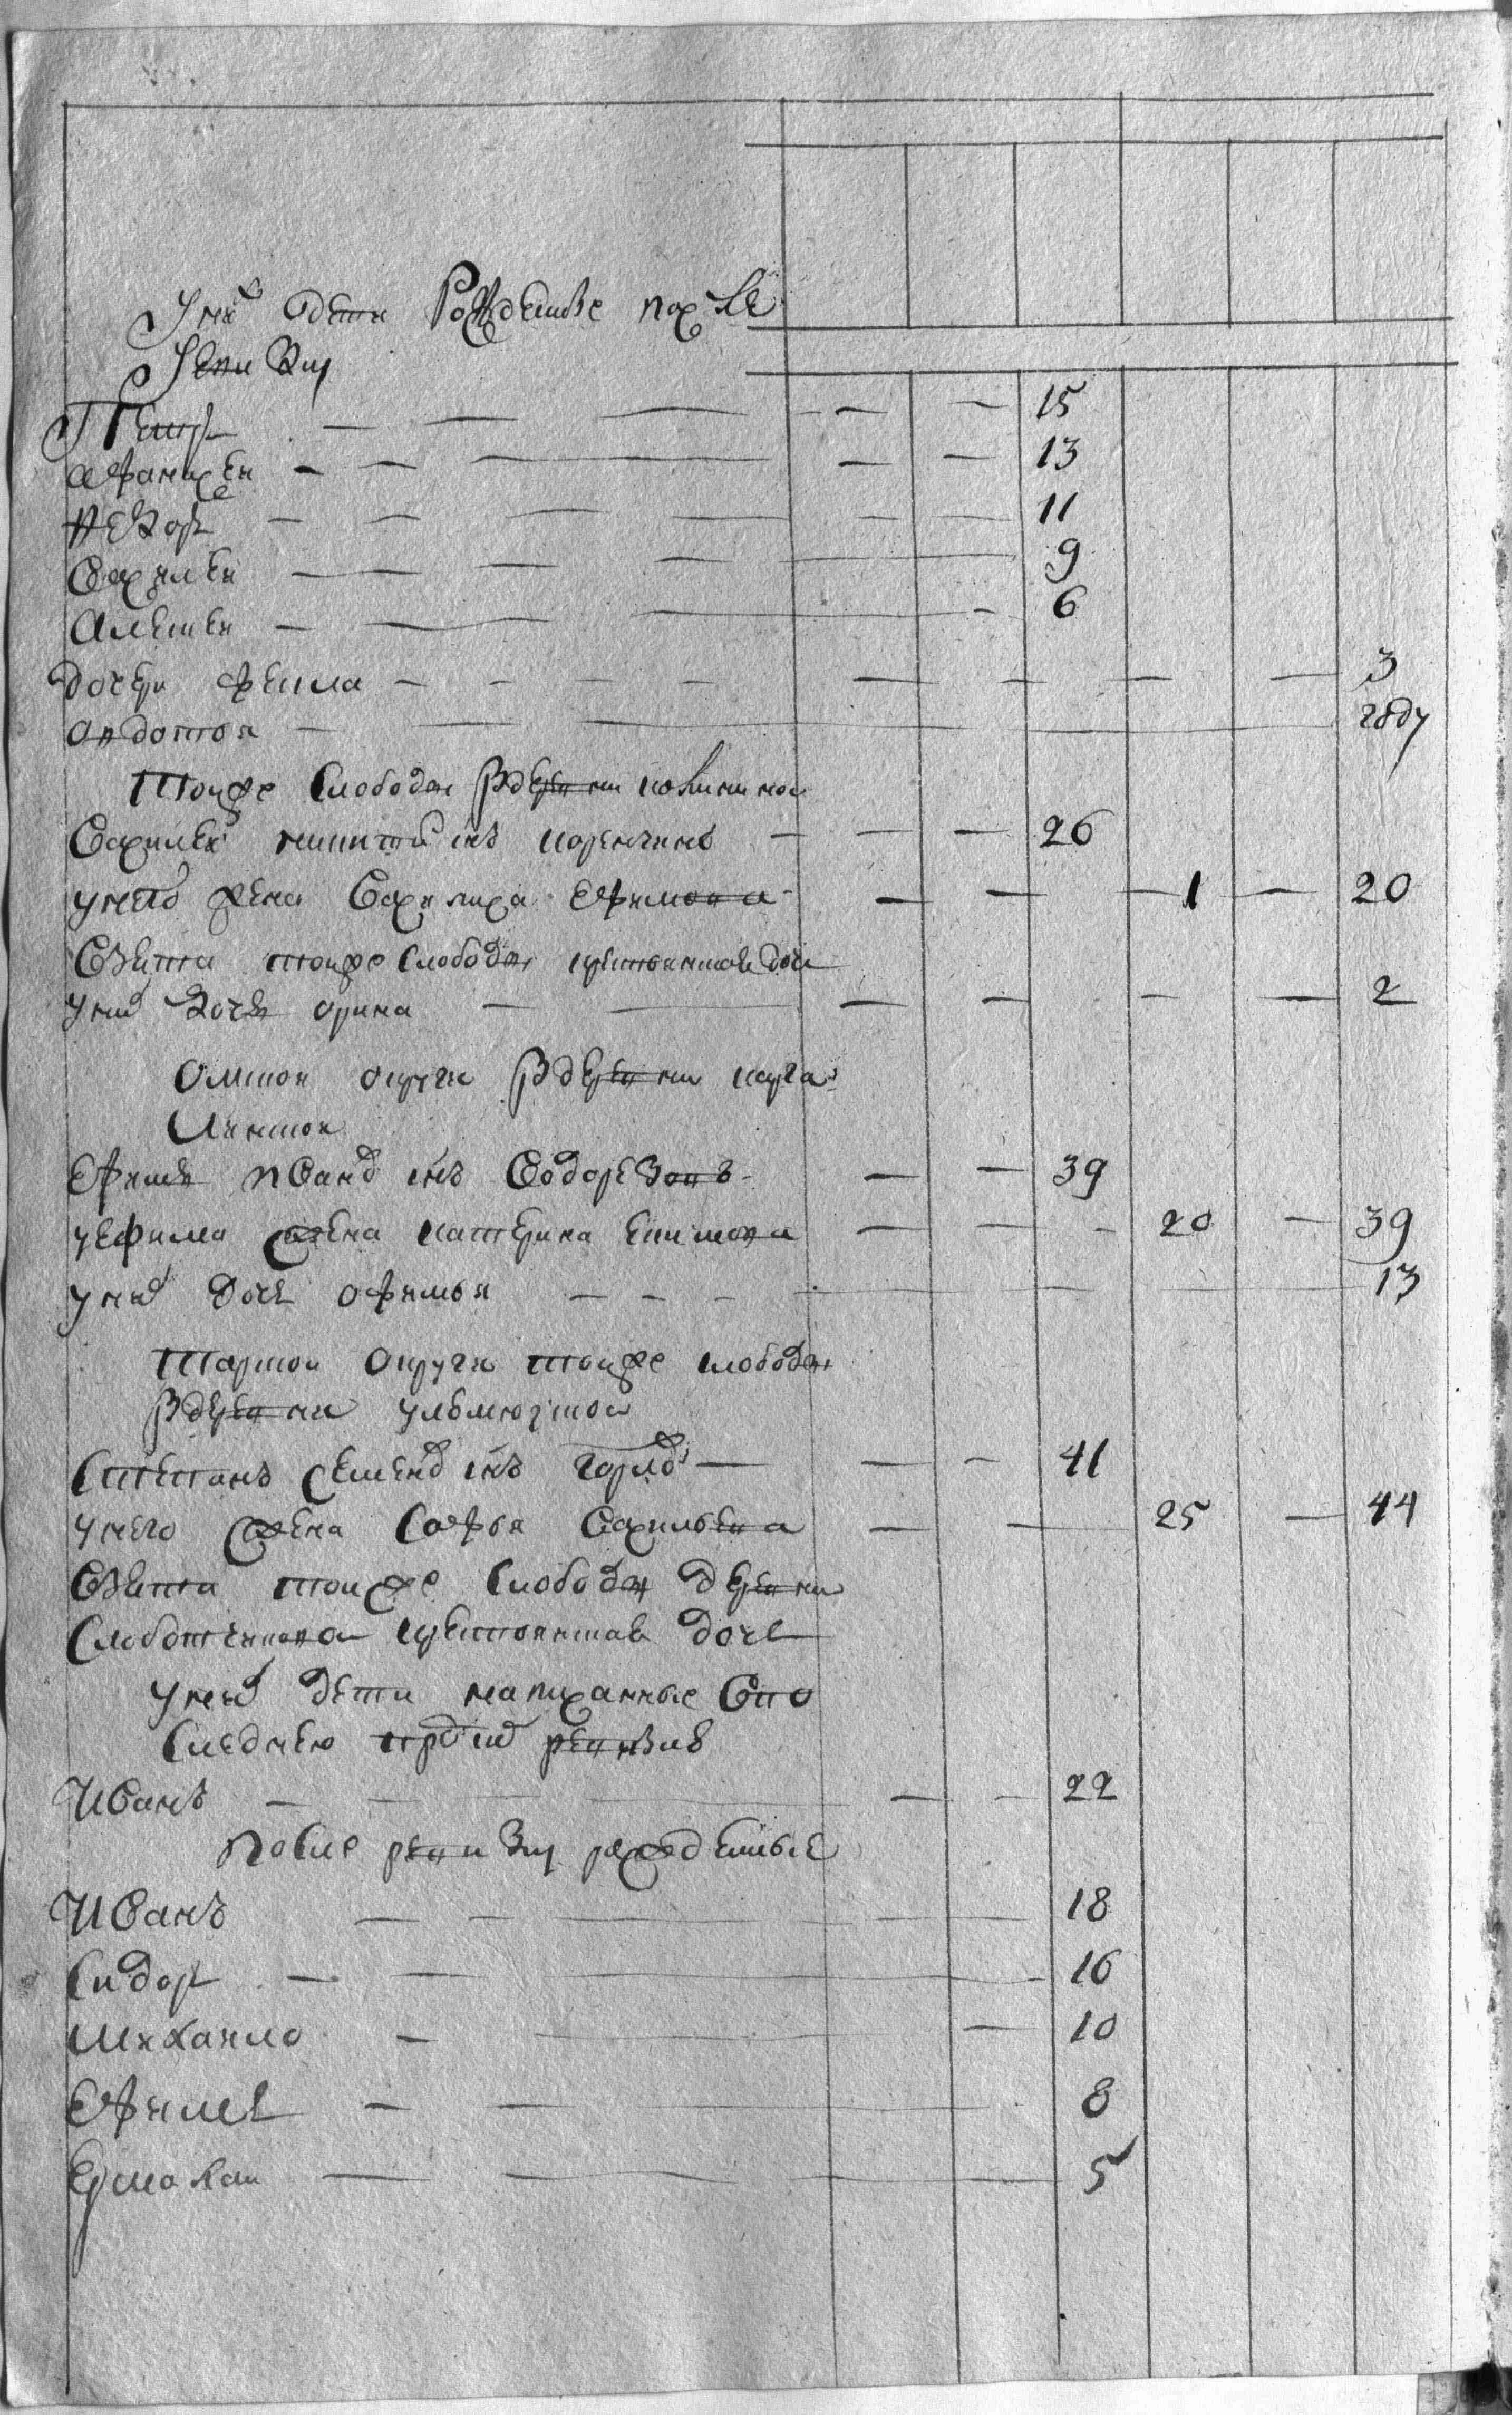 У них дети рожденные после
ревизии
Петр — 15
Афанасеи — 13
Федор — 11
Василеи — 9
Алексеи — 6
дочери Фекла — 3
Овдотья — году
Тоиже слободы в деревни
Василеи Никитин сын — 26
у него жена Василиса Ефимова — 1 — 20
взята тоиже слободы крестьянская дочь
у них дочь Орина — 2
Омской округи в деревни
Ефим Иванов сын — 39
у Ефима жена Катерина Екимова — 20 — 39
у них дочь Офимья — 13
Тарской округи тоиже слободы
в деревни
Степан Семенов сын — 41
у него жена Софья Васильева — 25 — 44
взята тоиже слободы деревни
крестьянская дочь
у них дети написанные в по
следнею пред сим ревизию
Иван — 22
После ревизии рожденные
Иван — 18
Сидор — 16
Михаило — 10
Ефим — 8
Ермолаи — 5